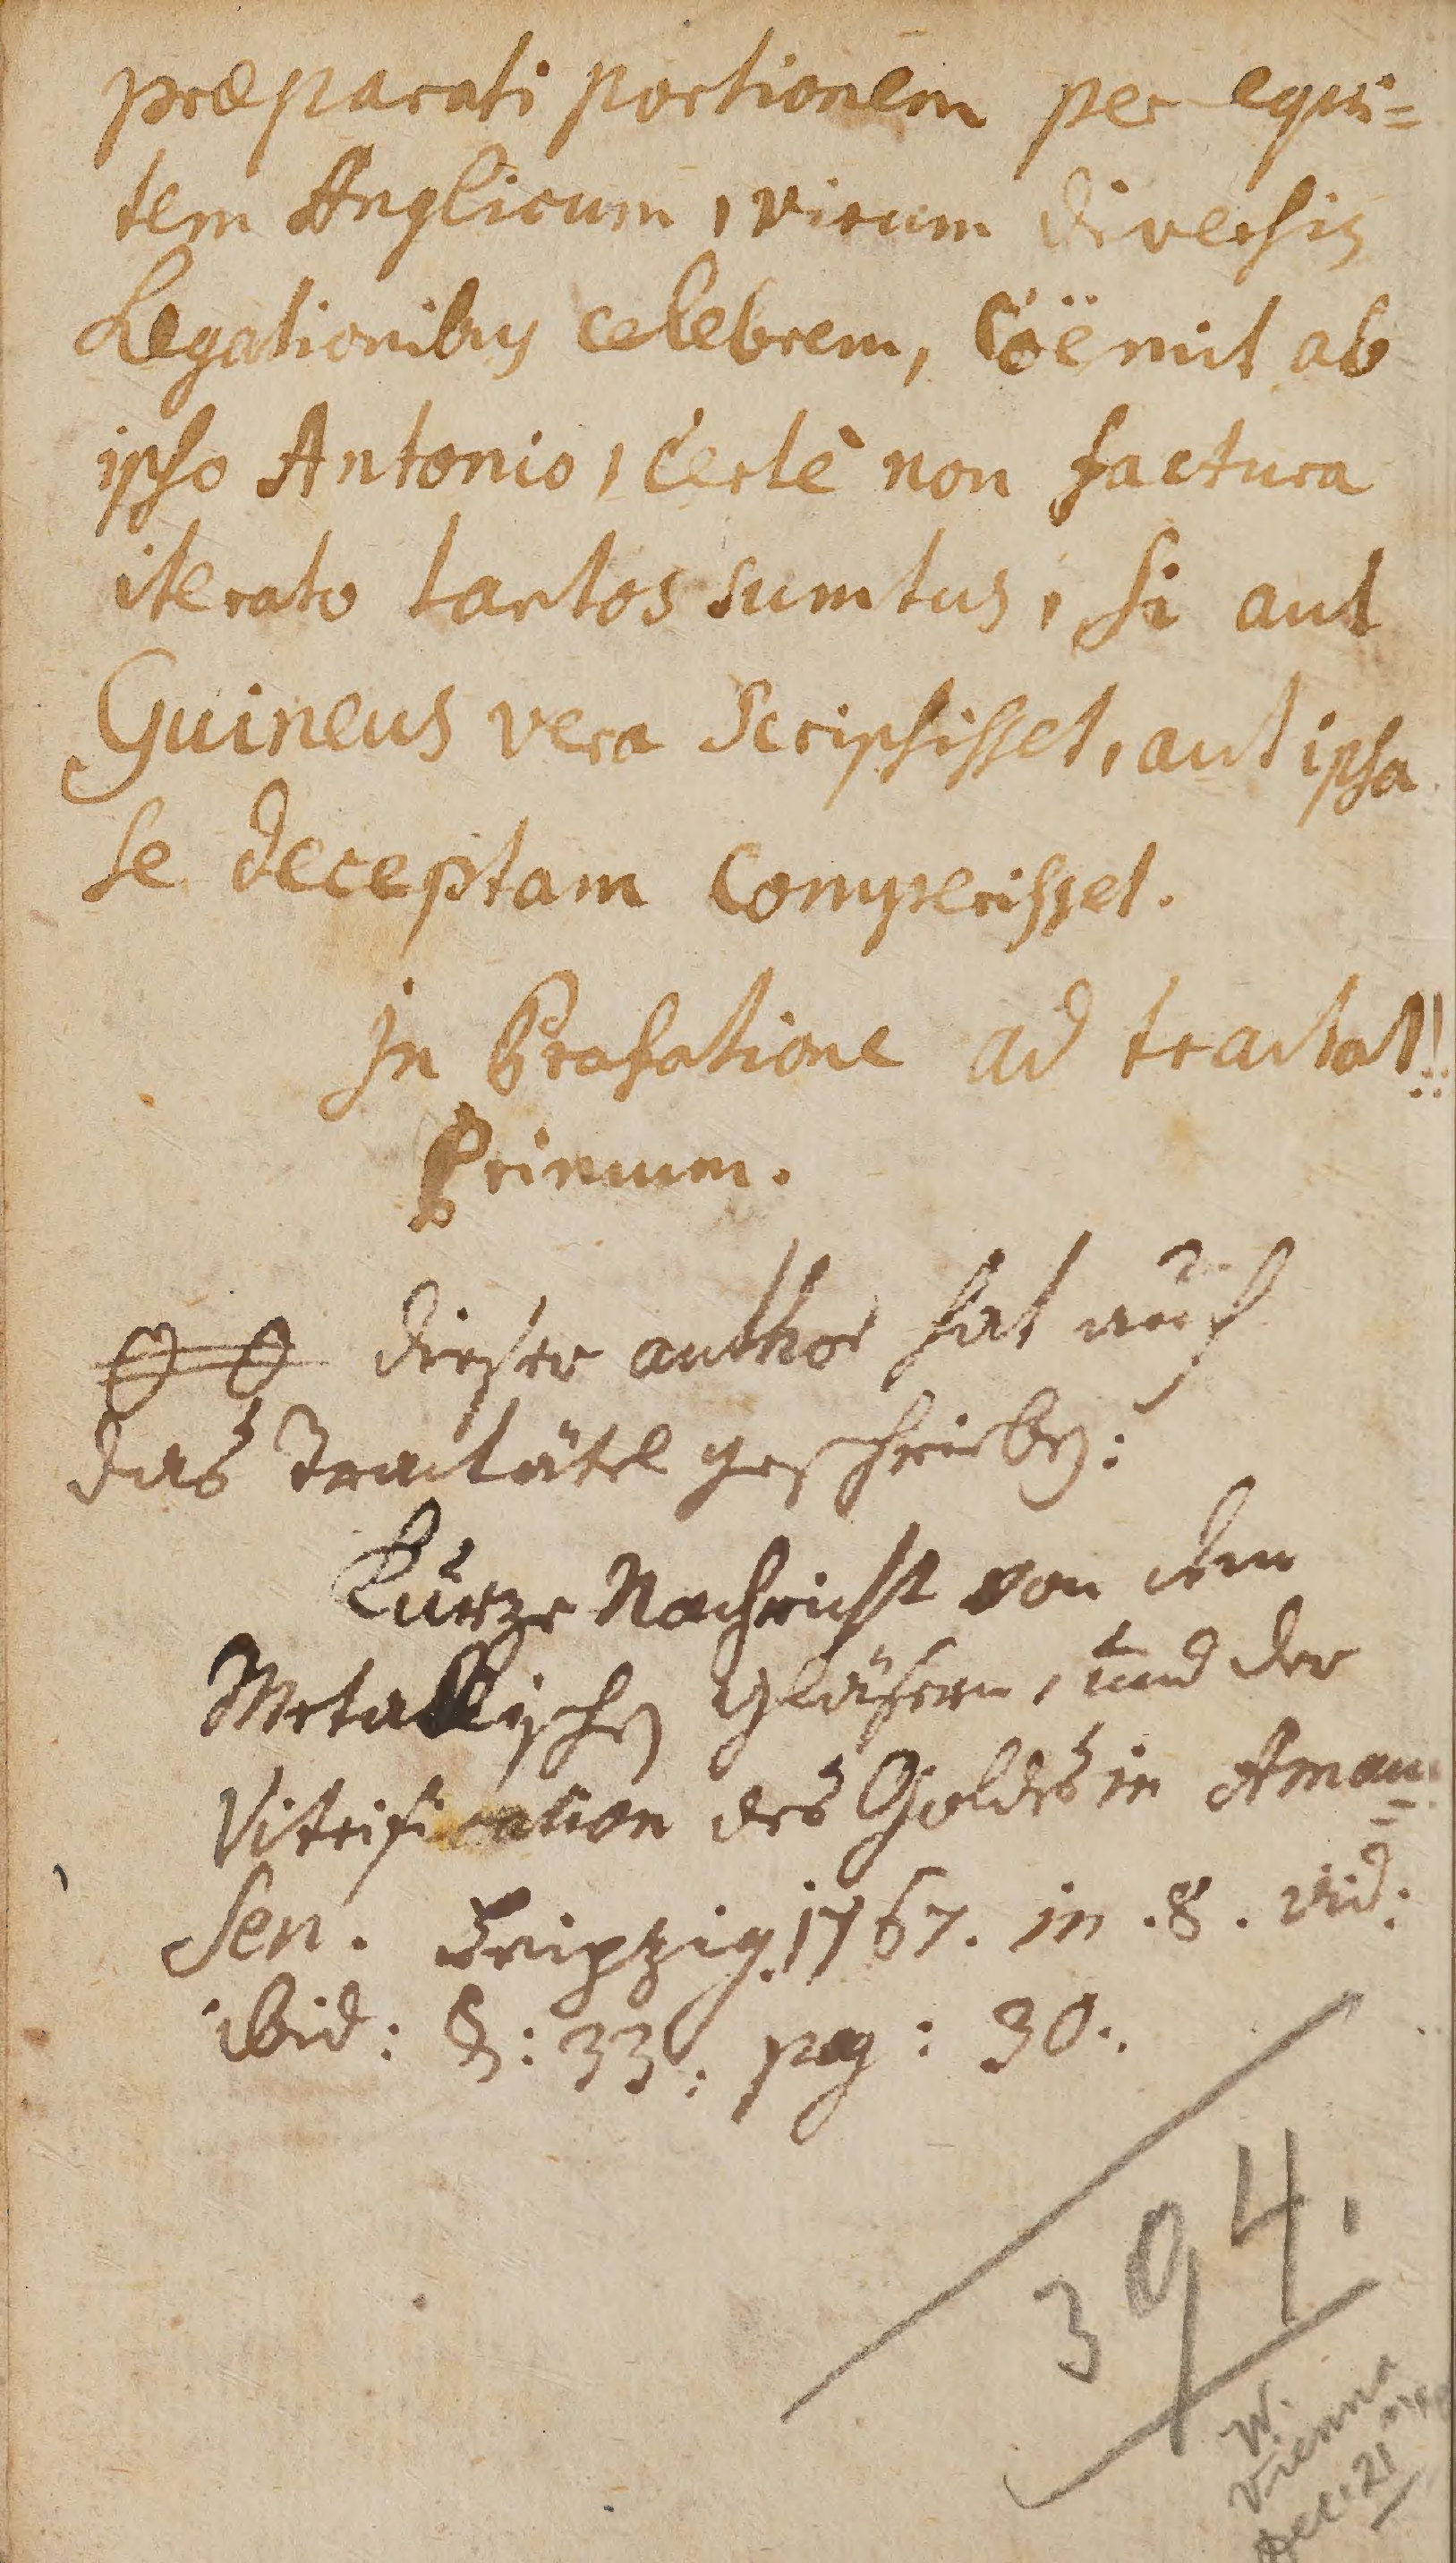 præparati portionem per equi=
tem Anglicum, virum diversis
Legationibus celebrem, Coëmit ab
ipso Antonio, Certè non factura
iterato tantos sumtus, si aut
Guineus vera Scripsisset, aut ipsa
se deceptam Comperisset.
In Præfatione ad tractat!!
Primum.
dieser author hat auch
das Tractätel geschrieben:
Kurze Nachricht von den
Metallischen Gläsern, und der
Vitrification des Goldes in Amau=
sen. Leipzig. 1767. in .8. vid:
ibid: §: 33: pag: 30.
394.
W.
Vienna
Dec. 21